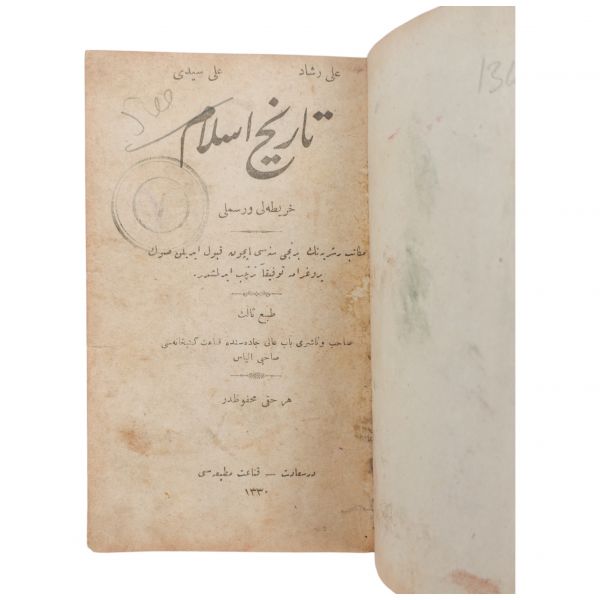 علی رشاد علی سیدی
تاریخ اسلام
خریطه‌لی و رسملی
مکاتب رشدیه‌نك برنجی سنه‌سی ایچون قبول ایدیلن صوك
پروغرامه توفیقاً ترتیب ایدلمشدر.
طبع ثالث
صاحب و ناشری باب عالی جاده‌سنده قناعت کتبخانه‌سی
صاحبی الیاس
هر حقی محفوظدر
درسعادت — قناعت مطبعه‌سی
۱۳۳۰